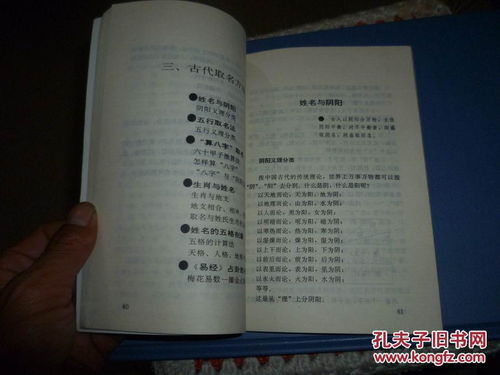 三、古代取名方
●姓名与阴阳
阴阳义理分类
●五行取名法
五行义理分类
●“算八字”
六十甲子推算法
怎样算“八字”
“八字”与
●生肖与姓名
生肖与地支
地支相合、相冲、
取名与姓氏生肖
●姓名的五格
五格的计算法
天格、人格、地格
●《易经》占卦
梅花易数一撮金
60
姓名与阴阳
●
阴阳义理分类
按中国古代的传统理论，世界上万事万物都可以按
“阴”、“阳”去分别。什么是阴，什么是阳呢？
以天地而论，天为阳，地为阴；
以地理而论，山为阳，水为阴；
以人而论，男为阳，女为阴；
以明暗而论，明为阳，暗为阴；
以寒热而论，热为阳，寒为阴；
以燥烂而论，燥为阳，烂为阴；
以上下而论，上为阳，下为阴；
以前后而论，前为阳，后为阴；
以表里而论，表为阳，里为阴；
以水火而论，火为阳，水为阴；
等等。
这是从“理”上分阴阳。
61
孔夫子旧书网
www.kongfz.com